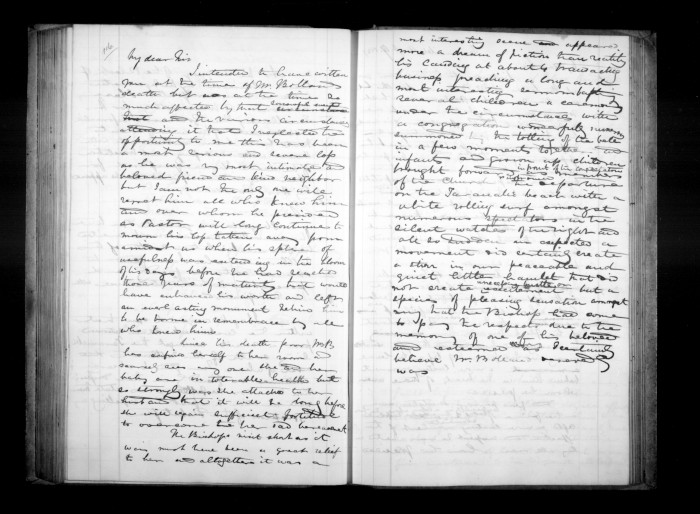 116
My dear Sir
I intended to have written
you at the time of Mr Bollons
death but at the time so
much affected by that
and the various circumstances
attending it that I neglected the
opportunity to me this has been
a most serious and severe loss
as he was my most intimate and
beloved friend and kind neighbor
but I am not the only one will
regret him all who knew him
and over whom he presided
as Pastor will long continue to
mourn his loss taken away from
amongst us when his sphere of
usefulness was extending in the bloom
of his days before he had reached
those years of maturity but would
have enhanced his worth and left
an everlasting monument behind him
to be borne in remembrance by all
who loved him
Since his death poor Mrs B
has confined herself to her room and
scarcely sees any one she and her
baby are in tolerable health but
so strongly was she attached to her
husband that it will be long before
she will regain sufficient fortitude
to overcome her sad bereavement
The Bishops visit short as it
was must have been a great relief
to her and altogether it was a
most interesting scene and appeared
more a dream of fiction than reality
his landing at about 6 transacting
business preaching a long and
most interesting sermon
several children a ceremony
under the circumstances with
a congregation wonderfully
summoned by the tolling of the bell
in a few moments together and
infants and grown up children
brought forward
of the Church and departure
on the beach with a
white rolling surf amongst
numerous in the
silent watches of the night and
all so sudden
movement did certainly create
a stir in our peaceable and
quiet little hamlet that did
not create excitement but a
species of pleasing sensation amongst
many that the Bishop had come
to pay the respect due to the
memory of one of his beloved
and esteemed I certainly
believe Mr
was